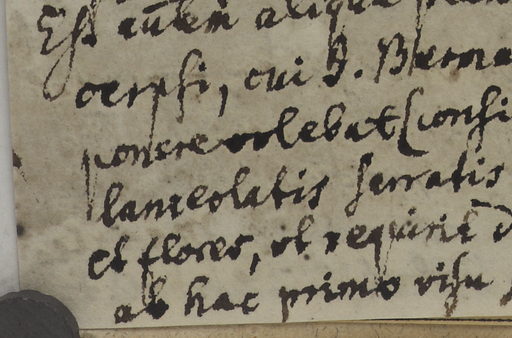 Est autem aliqua
oerpsi, cui D. Berna
ponere volebat (consi
lanceolatis serratis
et flores, vt requirit
ab hac primo visu